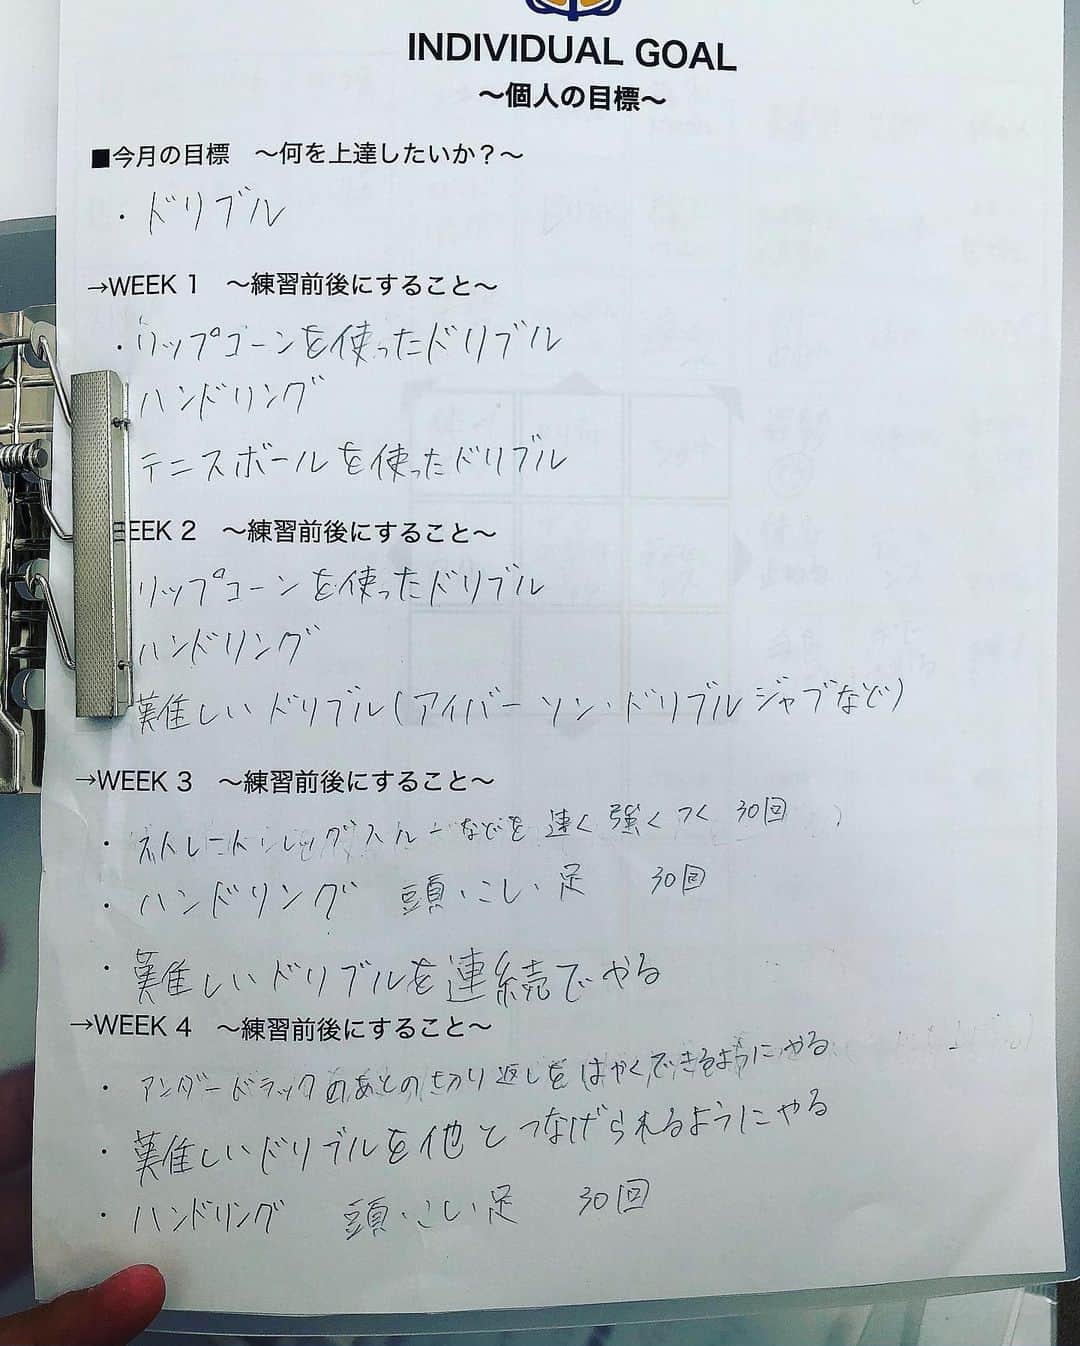 INDIVIDUAL GOAL
〜個人の目標〜
■今月の目標　〜何を上達したいか？〜
・ドリブル
→WEEK 1　〜練習前後にすること〜
・リップコーンを使ったドリブル
ハンドリング
テニスボールを使ったドリブル
EEK 2　〜練習前後にすること〜
リップコーンを使ったドリブル
ハンドリング
難しいドリブル(アイバーソン・ドリブルジャブなど)
→WEEK 3　〜練習前後にすること〜
・ストレート・レッグスルーなどを速く強くつく 30回
・ハンドリング　頭・こし・足　30回
・難しいドリブルを連続でやる
→WEEK 4　〜練習前後にすること〜
・アンダードラックのあとの切り返しをはやくできるようにやる
・難しいドリブルを他とつなげられるようにやる
・ハンドリング　頭・こし・足　30回